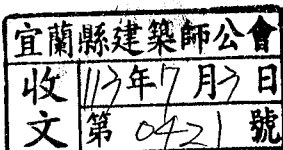 宜蘭縣建築師公會
收文
113年7月3日
第0421號